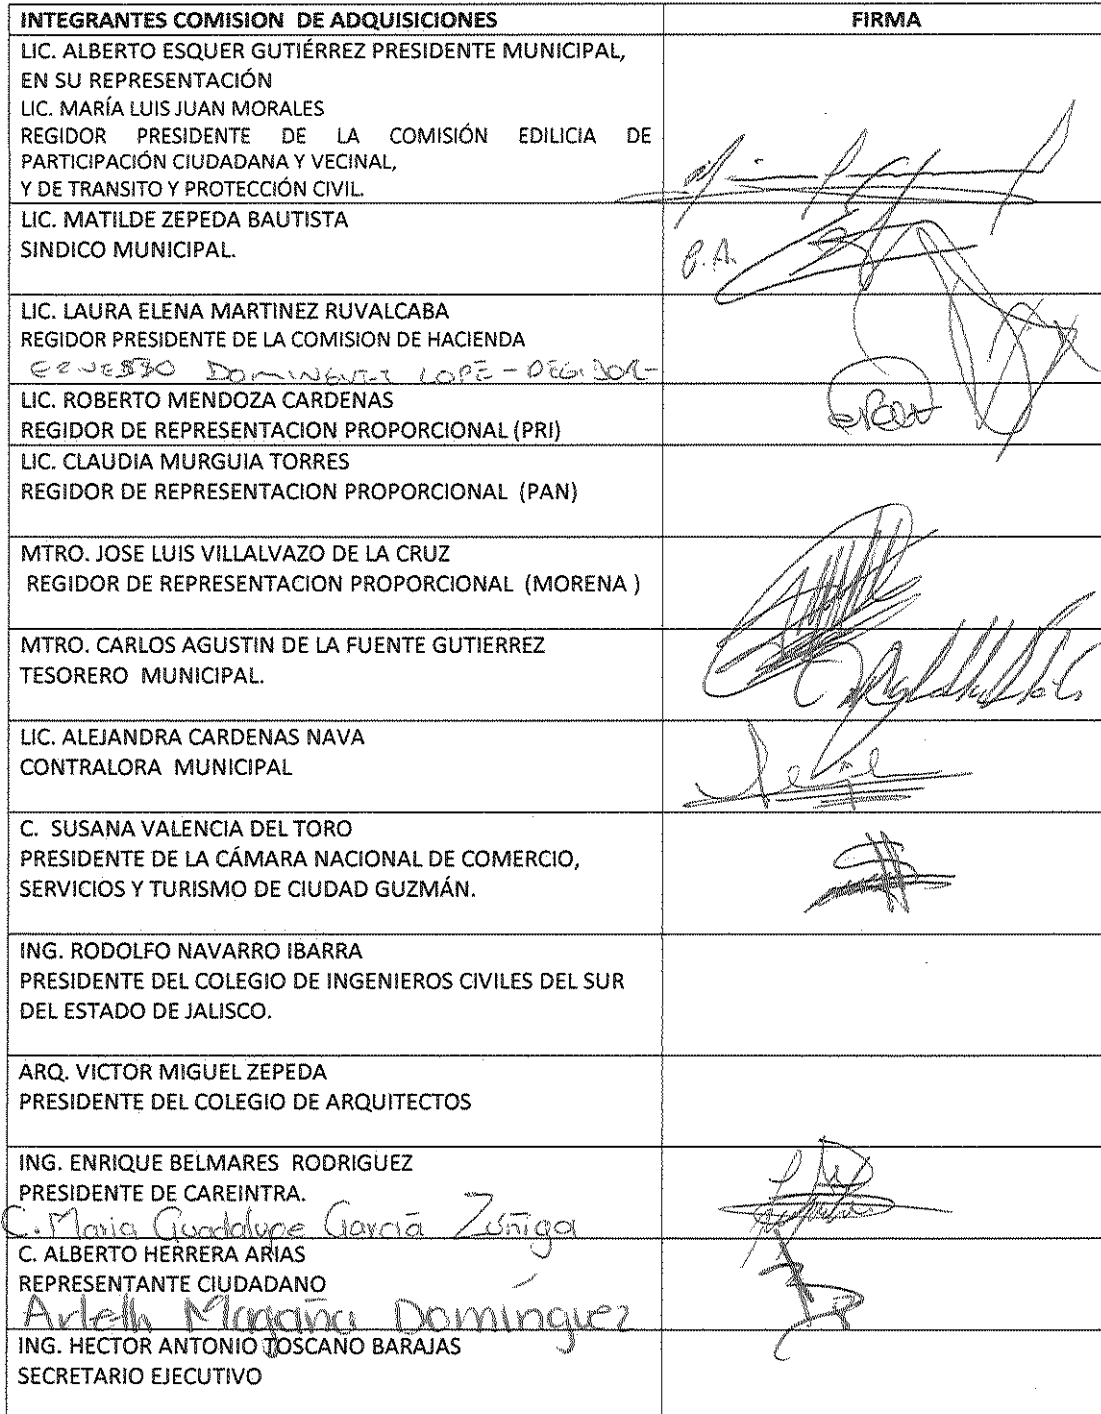 INTEGRANTES COMISION DE ADQUISICIONES FIRMA
LIC. ALBERTO ESQUER GUTIÉRREZ PRESIDENTE MUNICIPAL,
EN SU REPRESENTACIÓN
LIC. MARÍA LUIS JUAN MORALES
REGIDOR PRESIDENTE DE LA COMISIÓN EDILICIA DE
PARTICIPACIÓN CIUDADANA Y VECINAL,
Y DE TRANSITO Y PROTECCIÓN CIVIL.
LIC. MATILDE ZEPEDA BAUTISTA
SINDICO MUNICIPAL.
P.A.
LIC. LAURA ELENA MARTINEZ RUVALCABA
REGIDOR PRESIDENTE DE LA COMISION DE HACIENDA
DOMINGUEZ
LIC. ROBERTO MENDOZA CARDENAS
REGIDOR DE REPRESENTACION PROPORCIONAL (PRI)
LIC. CLAUDIA MURGUIA TORRES
REGIDOR DE REPRESENTACION PROPORCIONAL (PAN)
MTRO. JOSE LUIS VILLALVAZO DE LA CRUZ
REGIDOR DE REPRESENTACION PROPORCIONAL (MORENA )
MTRO. CARLOS AGUSTIN DE LA FUENTE GUTIERREZ
TESORERO MUNICIPAL.
LIC. ALEJANDRA CARDENAS NAVA
CONTRALORA MUNICIPAL
C. SUSANA VALENCIA DEL TORO
PRESIDENTE DE LA CÁMARA NACIONAL DE COMERCIO,
SERVICIOS Y TURISMO DE CIUDAD GUZMÁN.
ING. RODOLFO NAVARRO IBARRA
PRESIDENTE DEL COLEGIO DE INGENIEROS CIVILES DEL SUR
DEL ESTADO DE JALISCO.
ARQ. VICTOR MIGUEL ZEPEDA
PRESIDENTE DEL COLEGIO DE ARQUITECTOS
ING. ENRIQUE BELMARES RODRIGUEZ
PRESIDENTE DE CAREINTRA.
C. Maria Guadalupe García Zúñiga
C. ALBERTO HERRERA ARIAS
REPRESENTANTE CIUDADANO
Arleth Magaña Domínguez
ING. HECTOR ANTONIO TOSCANO BARAJAS
SECRETARIO EJECUTIVO